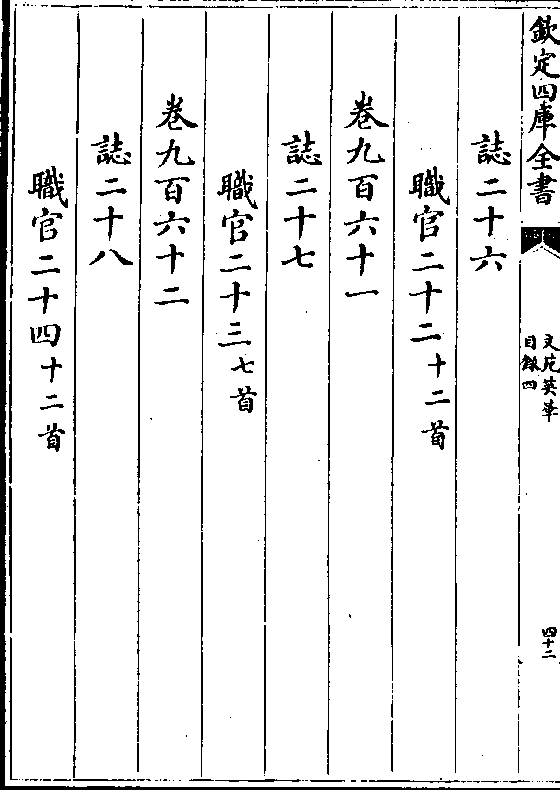 欽定四庫全書
文苑英華
目錄四
四十二
誌二十六
職官二十二十二首
卷九百六十一
誌二十七
職官二十三七首
卷九百六十二
誌二十八
職官二十四十二首